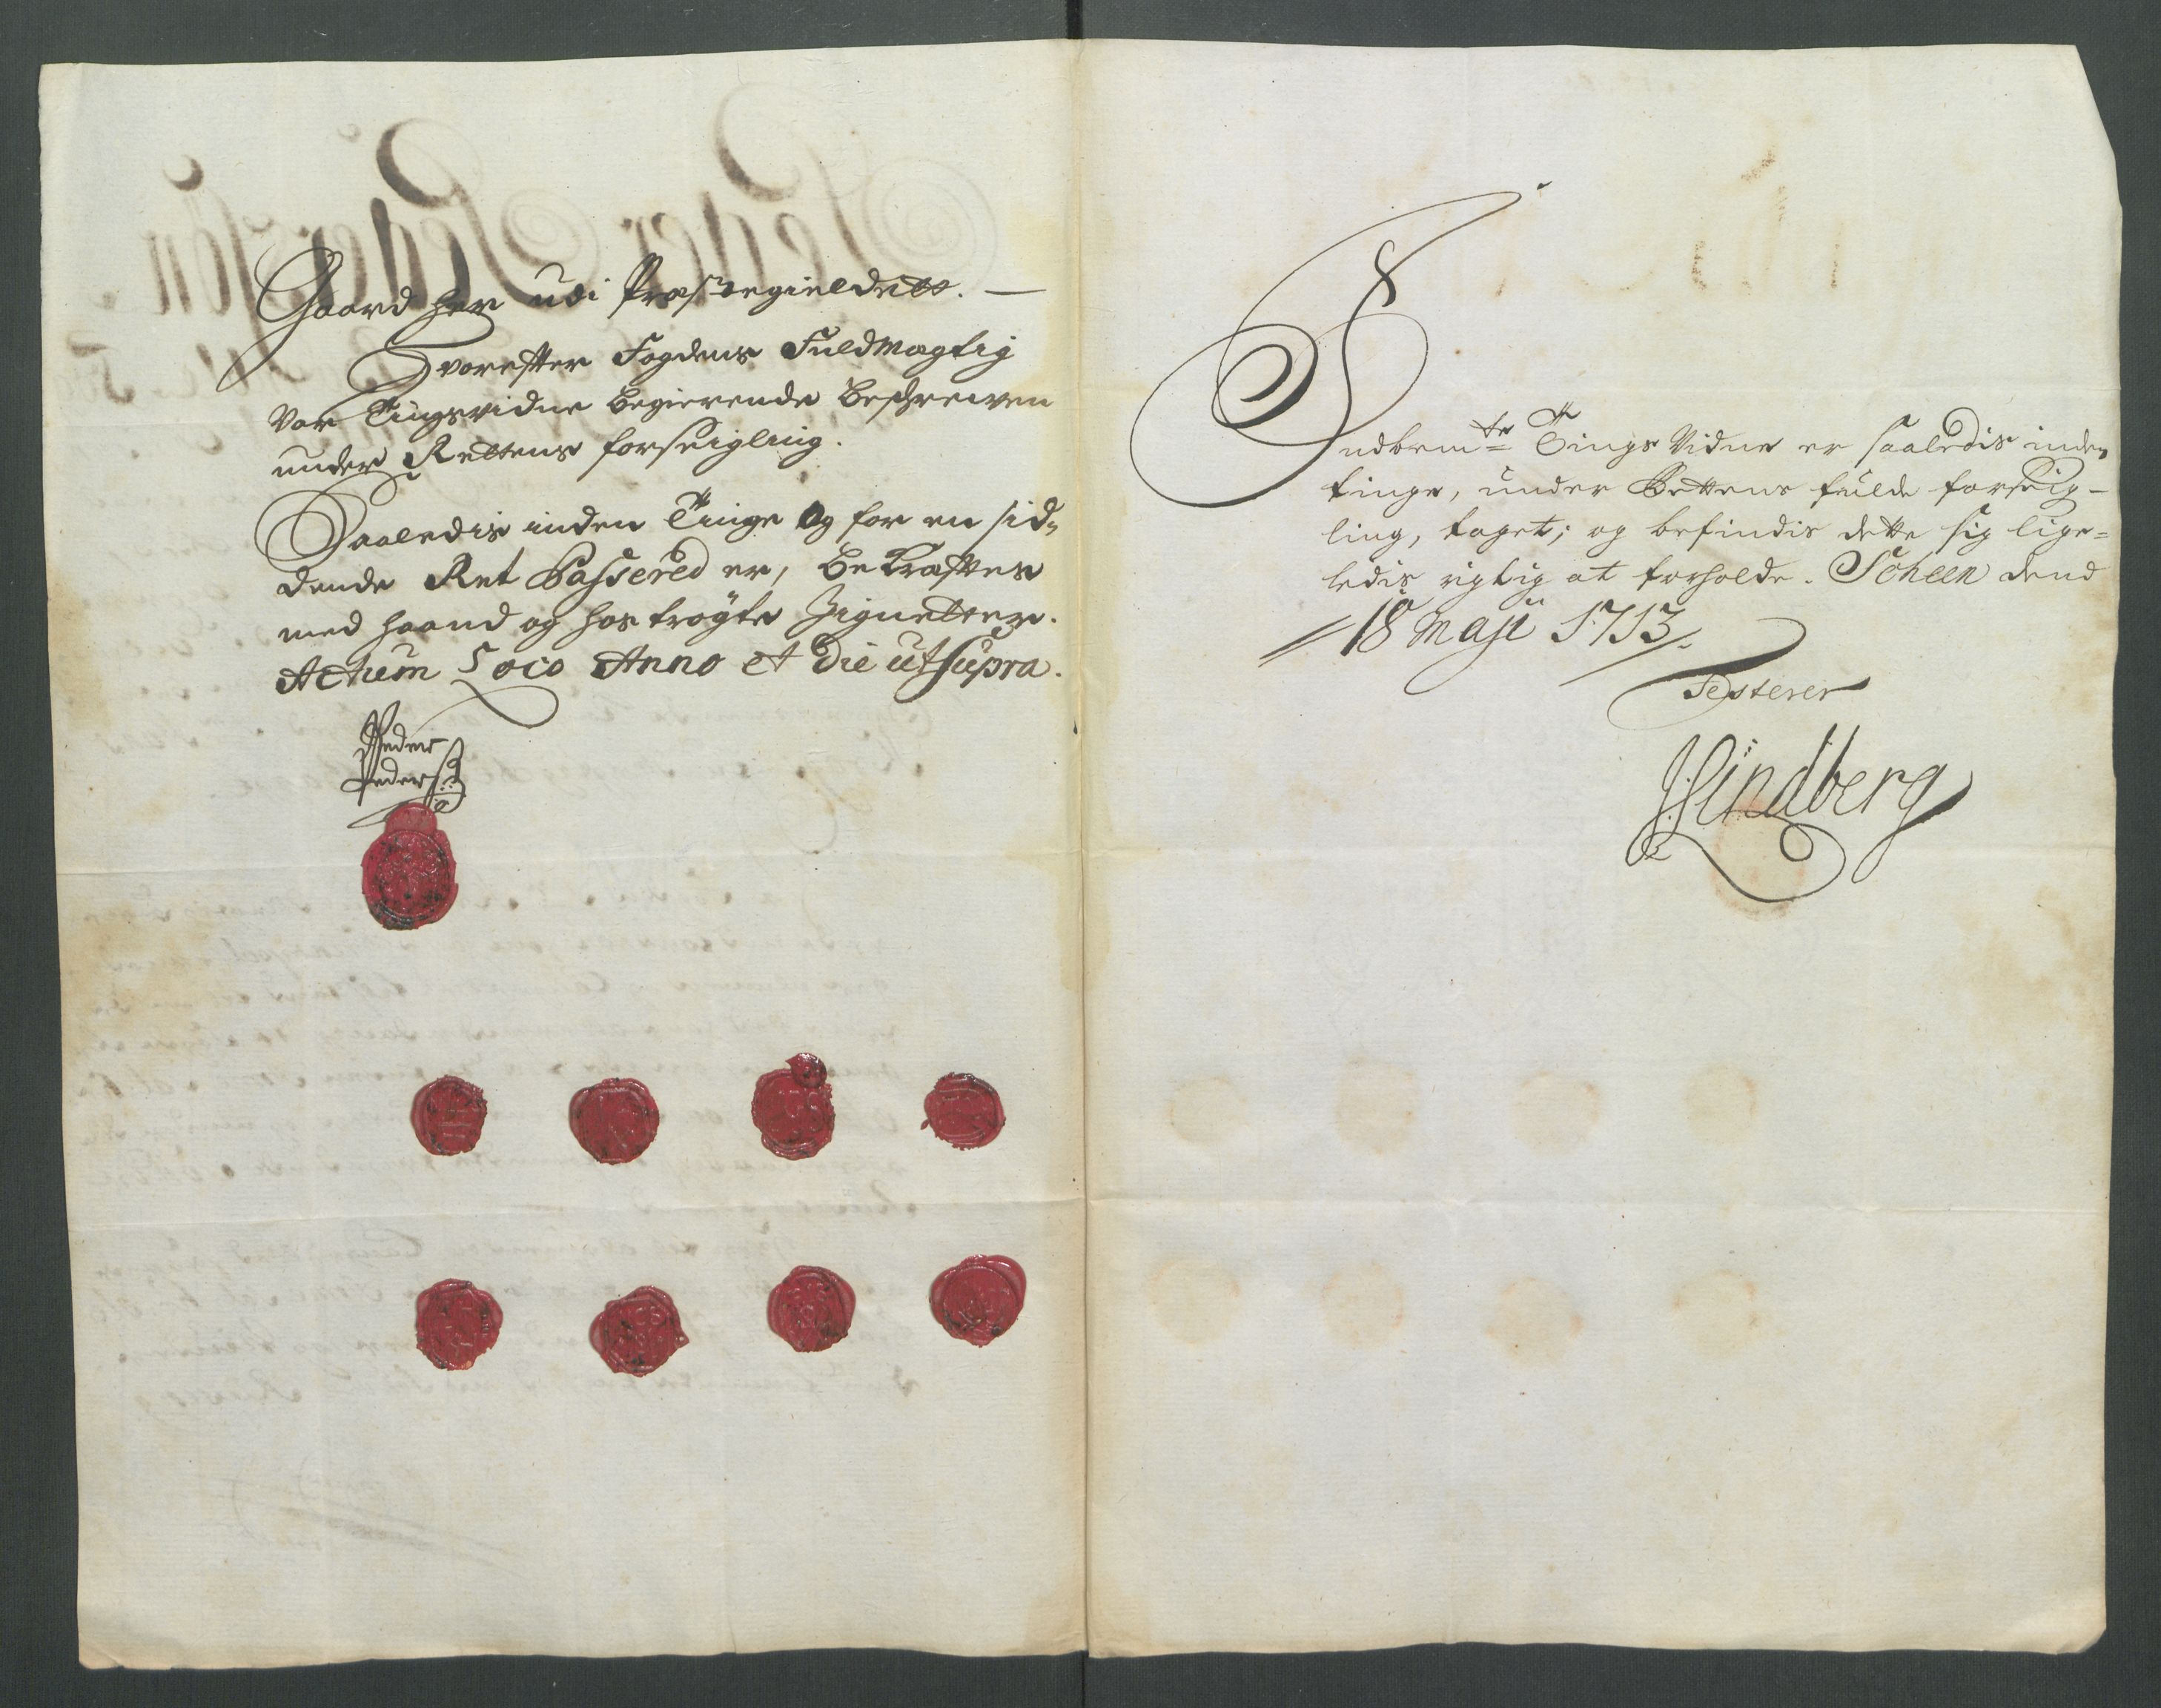 Gaard her udi Præstegieldett. —
Hvorefter Fogdens Fuldmægtig
var Tingsvidne begierende beschrewen
under Rettens forseigling.
Saaledis inden Tinge og for en sid-
dende Ret Passered er, bekræfter
med haand og hos trögte Zignetter.
Actum Loco Anno et die ut supra.
Peder
Peders:
Indbemte Tings Vidne er saaledis inden
tinge, under Rettens fulde forseig-
ling, taget; og befindis dette sig lige-
ledis rigtig at forholde. Scheen dend
18 Maji 1713.
Testerer
Lindberg